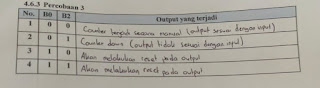 4.6.3 Percobaan 3
No. B0 B2 Output yang terjadi
1 0 0 Counter terjadi secara manual (output sesuai dengan input)
2 0 1 Counter down (output tidak sesuai dengan input)
3 1 0 Akan melakukan reset pada output
4 1 1 Akan melakukan reset pada output